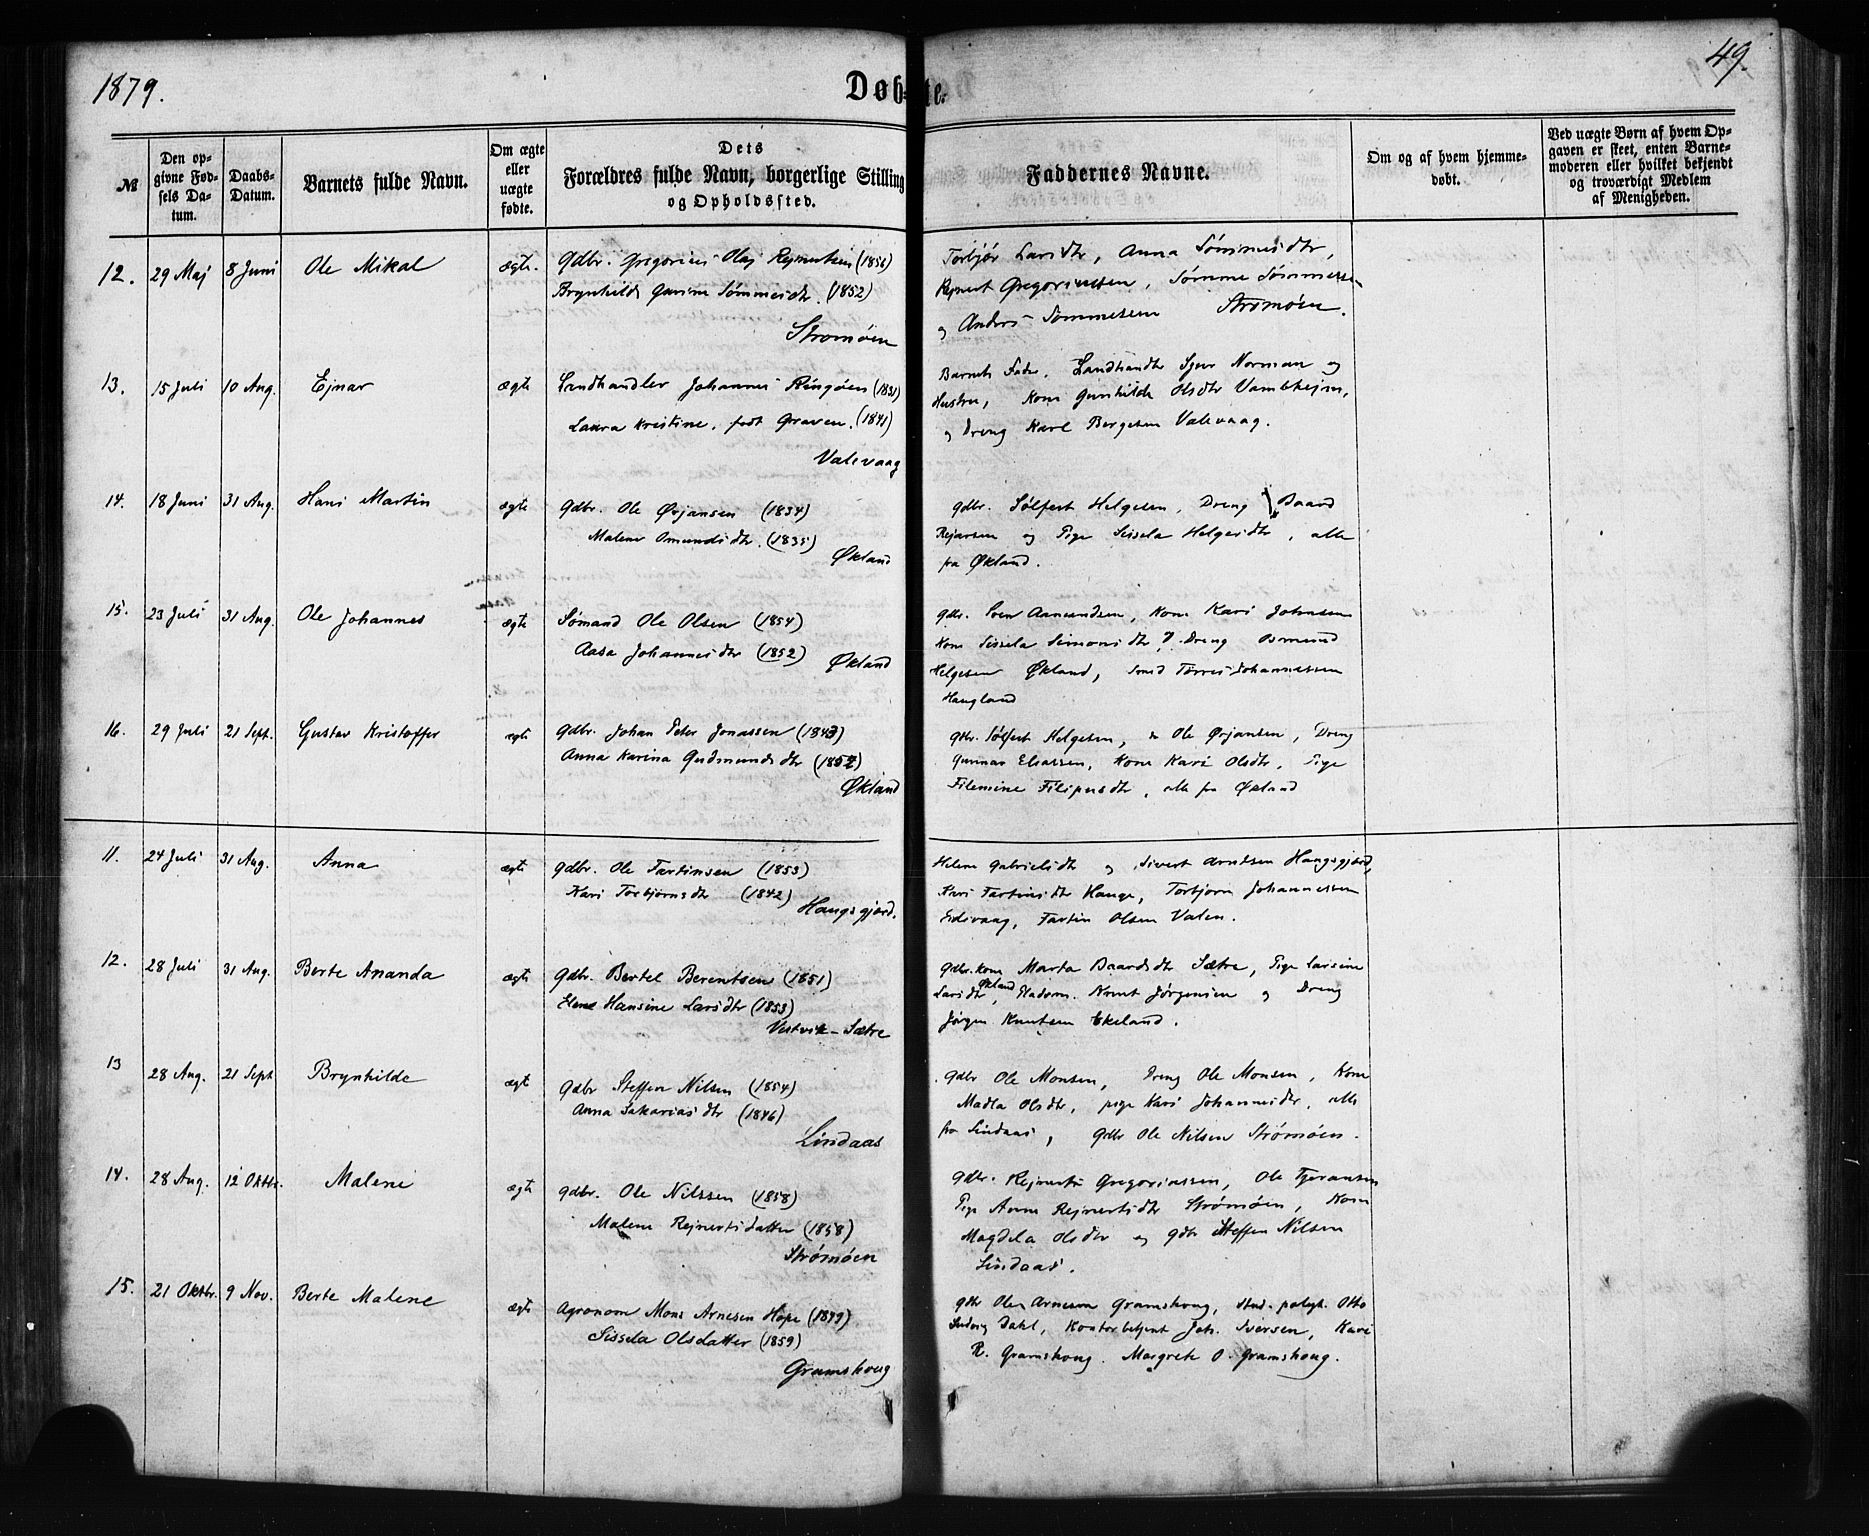 1879.
Døb-te.
49.
№
Den op-
givne Fød-
sels Da-
tum.
Daabs-
Datum.
Barnets fulde Navn.
Om ægte
eller
uægte
fødte.
Dets
Forældres fulde Navn, borgerlige Stilling
og Opholdssted.
Faddernes Navne.
Om og af hvem hjemme-
døbt.
Ved uægte Børn af hvem Op-
gaven er skeet, enten Barne-
moderen eller hvilket bekjendt
og troværdigt Medlem
af Menigheden.
12. 29 Maj 8 Juni Ole Mikal ægte. Gdbr. Gregorius Olaj Rejnertsen (1856)
Brynhilde Gurine Sømmesdtr. (1852)
Strømøen
Torbjør Larsdtr, Anna Sømmesdtr,
Rejnert Gregoriussen, Sømme Sømmesen
og Anders Sømmesen Strømøen.
13. 15 Juli 10 Aug. Ejnar ægte Landhandler Johannes Ringøen (1831)
Laura Kristine, født Graven. (1841)
Valevaag
Barnets Fader, Landhandler Norman og
Hustru, Kone Gunhilde Olsdtr
og Dreng Karl Bergesen Valevaag.
14. 18 Juni 31 Aug. Hans Martin ægte Gdbr. Ole Ørjansen (1834)
Malene Omundsdtr. (1835)
Økland
Gdbr. Sølfest Helgesen, Dreng Baard
Rejarsen og Pige Sissela Helgesdtr, alle
fra Økland.
15. 23 Juli 31 Aug. Ole Johannes ægte Sømand Ole Olsen (1854)
Aasa Johannesdtr (1852)
Økland
Gdbr. Sven Aamundsen, Kone Kari Johnsen
Kone Sissela Simonsdtr Dreng Osmund
Helgesen Økland, Smed Tørres Johannessen
Haugland
16. 29 Juli 21 Sept. Gustav Kristoffer ægte Gdbr. Johan Peter Jonassen (1843)
Anna Karina Gudmundsdtr (1852)
Økland
Gdbr. Sølfest Helgesen, Ole Ørjansen, Dreng
Gunnar Eliassen, Kone Kari Olsdtr, Pige
Filemine Filipusdtr, alle fra Økland
11. 24 Juli 31 Aug. Anna ægte Gdbr. Ole Tartinsen (1853)
Kari Torbjørnsdtr (1842)
Haugsgjærd.
Helene Gabrielsdtr og Sivert Arndsen Haugsgjærd,
Kari Tartinsdtr Hauge, Torbjørn Johannessen
Eidsvaag, Tartin Olsen Valen.
12. 28 Juli 31 Aug. Berte Ananda ægte Gdbr. Bertel Berentsen (1851)
Elene Hansine Larsdtr (1853)
Vestvik-Sætre
Gdbr. Kone Marta Baardsdtr Sætre, Pige Larsine
Larsdtr Økland, Knut Jørgensen og Dreng
Jørgen Knutsen Ekeland.
13 28 Aug. 21 Sept Brynhilde ægt Gdbr Steffen Nilsen (1854)
Anna Sakariasdtr (1846)
Lindaas
Gdbr Ole Monsen, Dreng Ole Monsen, Kone
Madla Olsdtr, pige Kari Johannesdtr, alle
fra Lindaas, Gdbr Ole Nilsen Strømøen.
14. 28 Aug. 12 Oktbr. Malene ægte Gdbr. Ole Nilssen (1858)
Malene Rejnertsdatter (1858)
Strømøen
Gdbr. Rejnert Gregoriussen, Ole Tjeransen
Pige Anne Rejnertsdtr Strømøen, Kone
Magdela Olsdtr og Gdbr Steffen Nilsen
Lindaas.
15. 21 Oktbr. 9 Nov. Berte Malene ægte Agronom Mons Arnesen Hope (1849)
Sissela Olsdatter (1859)
Gramshoug
Gdbr Ole Arneson Gramshoug, Stud. polyt. Otto
Ludvig Dahl, Kontorbetjent Joh. Iversen, Kari
R. Gramshoug. Margrete O. Gramshoug.